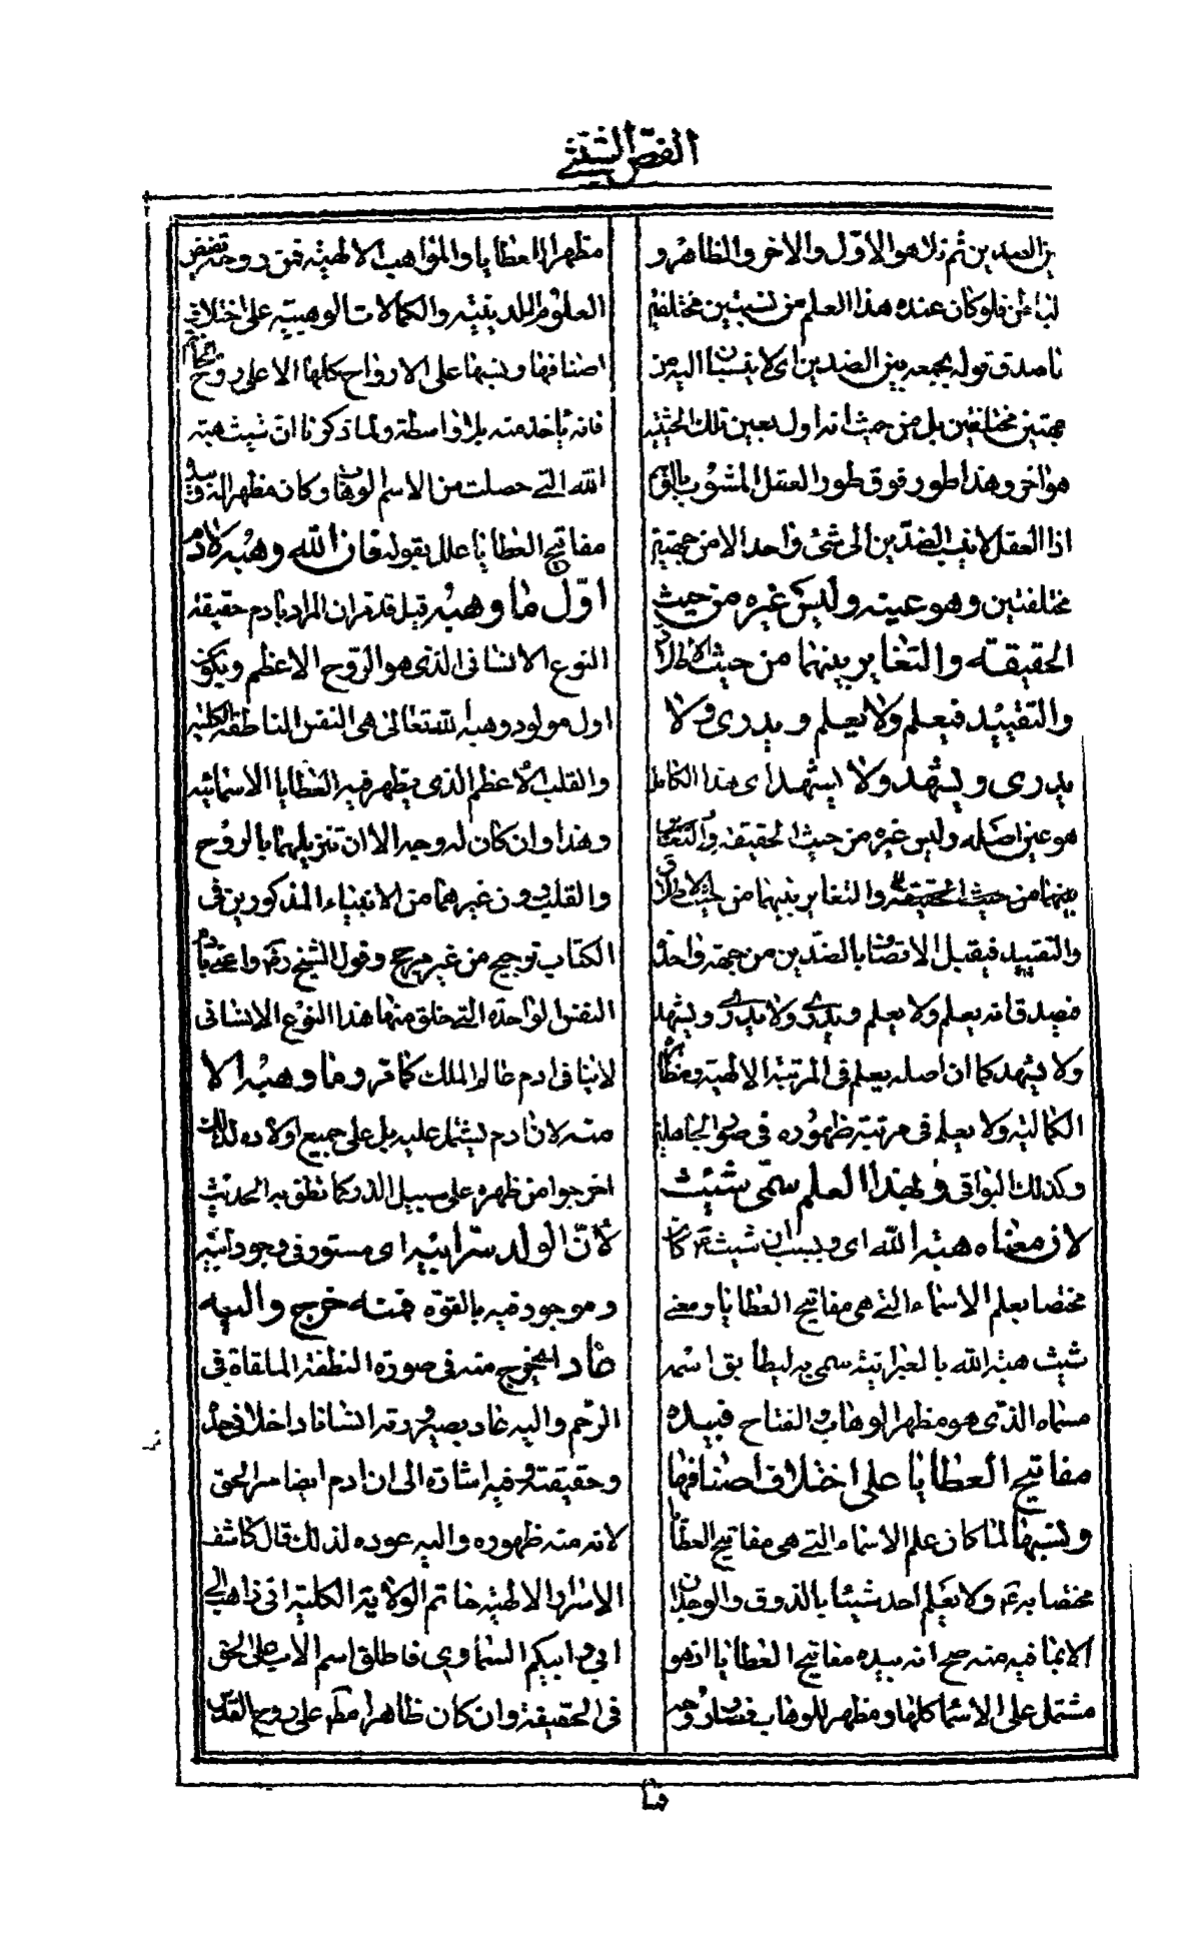 الفص الشيثي
بين الضدين ثم تلا هو الاوّل والاخر والظاهر و
لباطن فلو كان عنده هذا العلم من نسبتين مختلفتين
ما صدق قوله بجمعه بين الضدين اى لا ينسبان اليه من
جهتين مختلفتين بل من حيث انه اول بعين تلك الحيثية
هو اخر وهذا طور فوق طور العقل المشوب بالوهم
اذ العقل لا ينسب الضدّين الى شئ واحد الا من جهتين
مختلفتين وهو عينه وليس غيره من حيث
الحقيقة والتغاير بينهما من حيث الاطلاق
والتقييد فيعلم ولا يعلم ويدرى ولا
يدرى ويشهد ولا يشهد اى هذا الكامل
هو عين اصله وليس غيره من حيث الحقيقة والتغاير
بينهما من حيث الحقيقة والتغاير بينهما من حيث الاطلاق
والتقييد فيقبل الاتصاف بالضدّين من جهة واحدة
فيصدق انه يعلم ولا يعلم ويدرى ولا يدرى ويشهد
ولا يشهد كما ان اصله يعلم فى المرتبة الالهية ومظاهره
الكمالية ولا يعلم فى مرتبة ظهوره فى صور الجاهلين
وكذلك البواقى وبهذا العلم سمّى شيث
لان معناه هبة الله اى وبسبب ان شيث ع كان
مختصا بعلم الاسماء التى هى مفاتيح العطايا ومعنى
شيث هبة الله بالعبرانية سمى به ليطابق اسمه
مسماه الذى هو مظهر الوهاب والفتاح فبيده
مفاتيح العطايا على اختلاف اصنافها
ونسبها لما كان علم الاسماء التى هى مفاتيح العطايا
مختصا به ع ولا يعلم احد شيئا بالذوق والوجدان
الا بما فيه منه صح انه بيده مفاتيح العطايا اذ هو
مشتمل على الاسما كلها ومظهر للوهاب فصار روحه
مظهر العطايا والمواهب الالهية فمن روحه تفيض
العلوم اللدينية والكمالات الوهبية على اختلاف
اصنافها ونسبها على الارواح كلها الا على روح الخاتم
فانه يأخذ منه بلا واسطة ولما ذكرنا انّ شيث هبة
الله التى حصلت من الاسم الوهاب وكان مظهرا له وبيده
مفاتيح العطايا علل بقوله فان الله وهبه لادم
اوّل ما وهبه قيل قد تقرر ان المراد بادم حقيقة
النوع الانسانى الذى هو الروح الاعظم ويكون
اول مولود وهبه الله تعالى هى النفس الناطقة الكلية
والقلب الاعظم الذى يظهر فيه العطايا الاسمائية
وهذا وان كان له وجه الا ان تنزيلهما بالروح
والقلب دون غيرهما من الانبياء المذكورين فى
الكتاب ترجيح من غير مرجح وقول الشيخ رض واعنى بادم
النفس الواحدة التى خلق منها هذا النوع الانسانى
لا ينافى ادم عالم الملك كما مر وما وهبه الا
منه لان ادم يشتمل عليه بل على جميع اولاده لذلك
اخرجوا من ظهره على سبيل الذر كما نطق به الحديث
لأنّ الولد سرّ ابيه اى مستور فى وجود ابيه
وموجود فيه بالقوة فمنه خرج واليه
عاد الخروج منه فى صورة النطفة الملقاة فى
الرحم واليه عاد بصيرورته انسانا داخلا فى حدّه
وحقيقته وفيه اشارة الى ان ادم ايضا سر الحق
لانه منه ظهوره واليه عوده لذلك قال كاشف
الاسرار الالهية خاتم الولاية الكلية انى ذاهب الى
ابى وابيكم السماوى فاطلق اسم الاب على الحق
فى الحقيقة وان كان ظاهرا مطلقا على روح القدس
فما